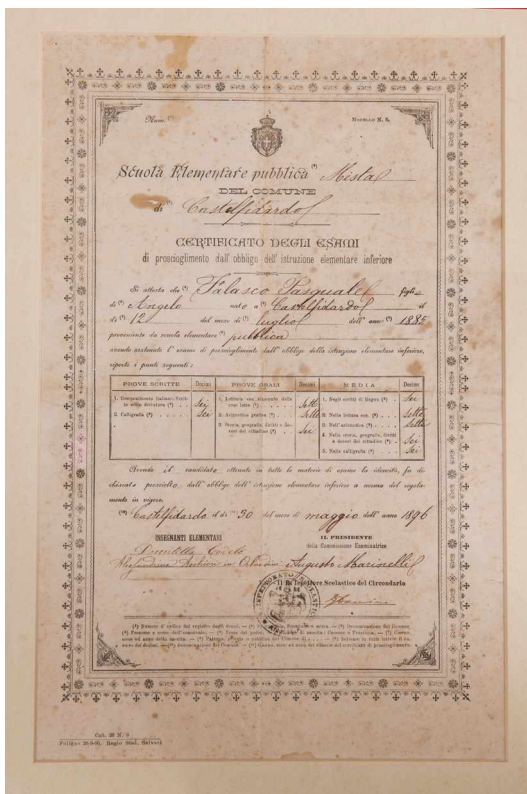 Num. (1)
MODELLO N. 8.
Scuola Elementare pubblica (2) Mista
DEL COMUNE
di (3) Castelfidardo
CERTIFICATO DEGLI ESAMI
di proscioglimento dall'obbligo dell'istruzione elementare inferiore
Si attesta che (4) Falasco Pasquale figlio
di (5) Angelo nato a (6) Castelfidardo il
dì (7) 12 del mese di (7) luglio dell'anno (7) 1885
proveniente da scuola elementare (8) pubblica
avendo sostenuto l'esame di proscioglimento dall'obbligo della istruzione elementare inferiore,
riportò i punti seguenti:
PROVE SCRITTE Decimi PROVE ORALI Decimi MEDIA Decimi
1. Componimento italiano, Scritto sotto dettatura (9) Sei
2. Calligrafia (9) Sei
1. Lettura con riassunto delle cose lette (9) Sette
2. Aritmetica pratica (9) Sette
3. Storia, geografia, diritti e doveri del cittadino (9) Sei
1. Negli scritti di lingua (9) Sei
2. Nella lettura ecc. (9) Sette
3. Nell'aritmetica (9) Sette
4. Nella storia, geografia, diritti e doveri del cittadino (9) Sei
5. Nella calligrafia (9) Sei
Avendo il candidato ottenuto in tutte le materie di esame la idoneità, fu dichiarato
prosciolto dall'obbligo dell'istruzione elementare inferiore a norma del regolamento
in vigore.
Castelfidardo il dì 30 del mese di maggio dell'anno 1896
INSEGNANTI ELEMENTARI
IL PRESIDENTE
della Commissione Esaminatrice
Augusto Marionelli
Il R. Ispettore Scolastico del Circondario
Cat. 28 N. 9
Foligno Regio Stab. Salvati